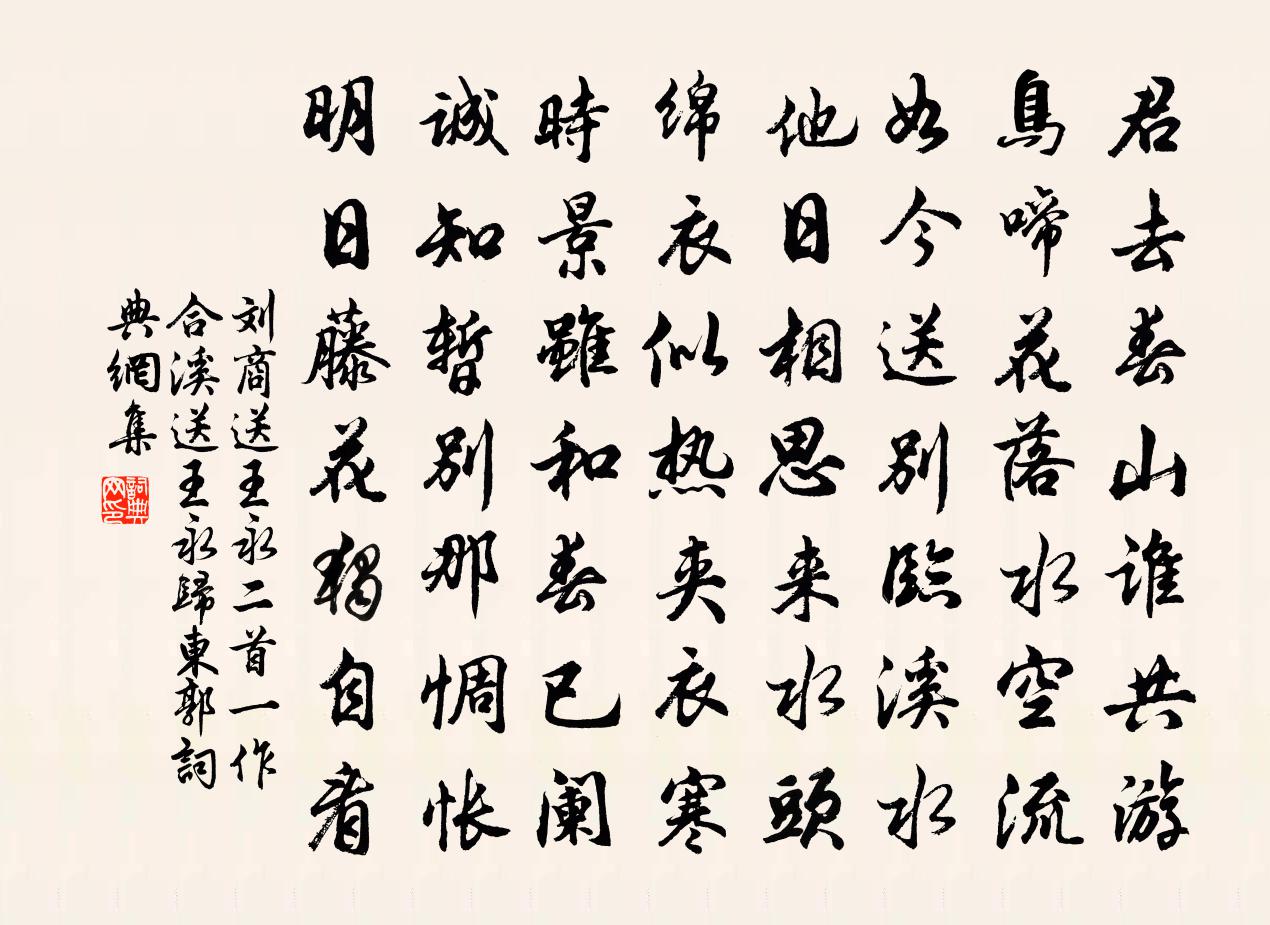 君去春山谁共游
鳥啼花落水空流
如今送别臨溪水
他日相思来水頭
绵衣似热夹衣寒
時景雖和春已阑
誠知暫别那惆怅
明日藤花独自看
刘商送王永二首一作
合溪送王永歸東郭詞
典網集
詞典网印